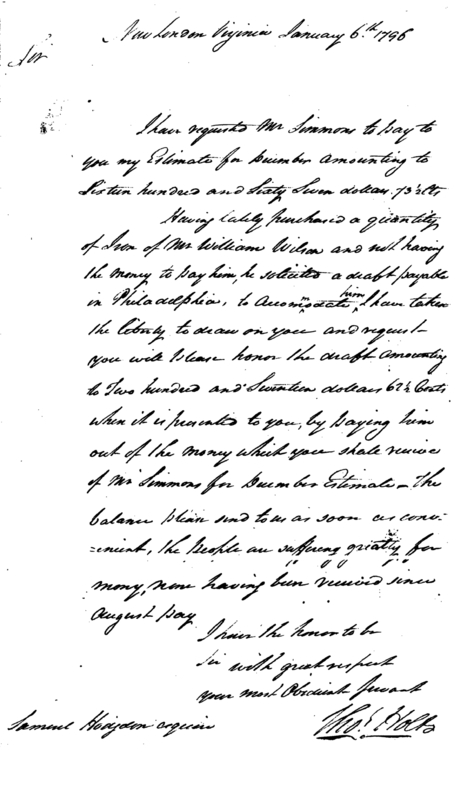 New London Virginia January 6.th 1796
Sir
I have requested Mr Simmons to pay to
you my Estimate for December amounting to
Sixteen hundred and Sixty Seven dollars. 73½ Cts
Having lately purchased a quantity
of Iron of Mr William Wilson and not having
the money to pay him, he solicited a draft payable
in Philadelphia, to Accommodate him I have taken
the liberty to draw on you and request
you will please honor the draft amounting
to Two hundred and Seventeen dollars 62½ Cents
when it is presented to you, by paying him
out of the money which you shall receive
of Mr Simmons for December Estimate – The
balance please send to us as soon as conv-
=enient, the People are suffering greatly for
mony, none having been received since
August pay
I have the honor to be
Sir with great respect
your most Obedient Servant
Tho.s Holt
Samuel Hodgdon esquire